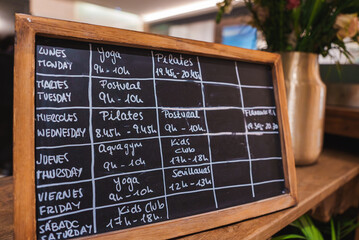 LUNES
MONDAY
Yoga
9h - 10h
Pilates
19.45 - 20.45
MARTES
TUESDAY
Postural
9h - 10h
MIERCOLES
WEDNESDAY
Pilates
8.45 - 9.45h
Postural
9h - 10h
19.30 - 20.30
JUEVES
THURSDAY
Aquagym
9h - 10h
Kids
club
17h - 18h
VIERNES
FRIDAY
Yoga
9h - 10h
Sevillanas
12h - 13h
SÁBADO
SATURDAY
Kids Club
17h - 18h